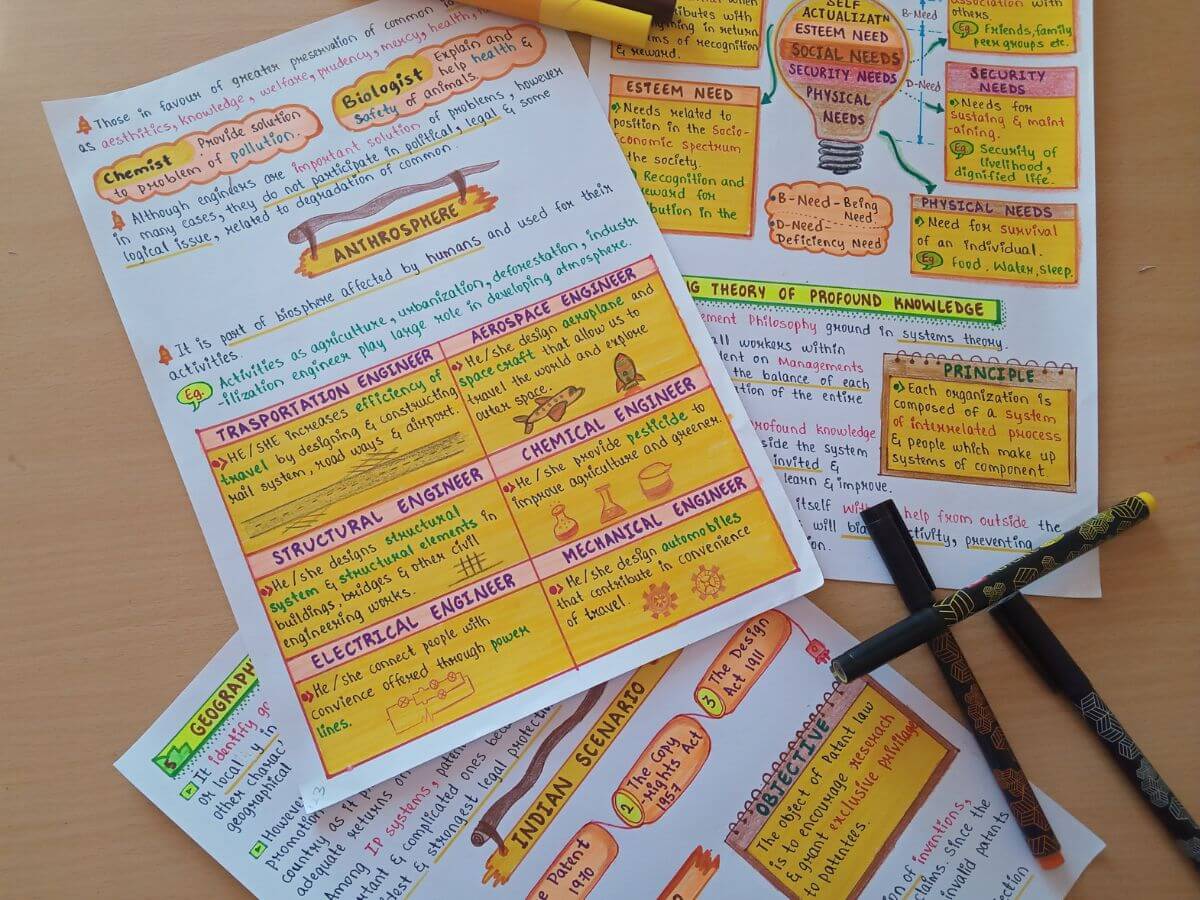 Those in favour of greater preservation of common
as aesthitics, knowledge, welfare, prudency, mercy, health,
Chemist Provide solution
to problem of pollution.
Biologist Explain and
help health &
safety of animals.
Although engineers are important solution of problems, however
in many cases, they do not participate in political, legal &
logical issue, related to degradation of common. & some
ANTHROSPHERE
It is part of biosphere affected by humans and used for their
activities.
Eg. Activities as agriculture, urbanization, deforestation, industr
-ilization engineer play large role in developing atmosphere.
TRASPORTATION ENGINEER
He/SHE increases efficiency of
travel by designing & constructing
rail system, road ways & airport.
AEROSPACE ENGINEER
He/she design aeroplane and
space craft that allow us to
travel the world and explore
outer space.
STRUCTURAL ENGINEER
He/she designs structural
system & structural elements in
buildings, bridges & other civil
engineering works.
CHEMICAL ENGINEER
He/she provide pesticide to
improve agriculture and greener.
ELECTRICAL ENGINEER
He/she connect people with
convience offered through power
lines.
MECHANICAL ENGINEER
He/she design automobiles
that contribute in convenience
of travel.
in return
of recognition
& reward.
ESTEEM NEED
Needs related to
position in the Socio-
economic spectrum
the society.
Recognition and
reward for
in the
SELF
ACTUALIZATN
ESTEEM NEED
SOCIAL NEEDS
SECURITY NEEDS
PHYSICAL
NEEDS
B-Need
D-Need
association with
others.
Eg Friends, family,
peer groups etc.
SECURITY
NEEDS
Needs for
sustaing & maint
-aining.
Eg Security of
livelihood,
dignified life.
B-Need-Being
Need
D-Need-
Deficiency Need
PHYSICAL NEEDS
Need for survival
of an individual.
Eg Food. Water, sleep.
THEORY OF PROFOUND KNOWLEDGE
Philosophy ground in systems theory.
all workers within
on Managements
the balance of each
of the entire
PRINCIPLE
Each organization is
composed of a system
of interrelated process
& people which make up
systems of component.
profound knowledge
the system
invited &
learn & improve.
itself help from outside the
will preventing
5 GEOGRAPH
It identify
or local
other
geographical
However
promotion
country as it
adequate returns
Among IP systems,
& complicated ones
& strongest legal
INDIAN SCENARIO
3 The Design
Act 1911
2 The Copy
-rights Act
1957
Patent
1970
OBJECTIVE
The object of Patent law
is to encourage reserach
& grant exclusive privilage
to patentees.
of invention,
claims. Since the
invalid patents